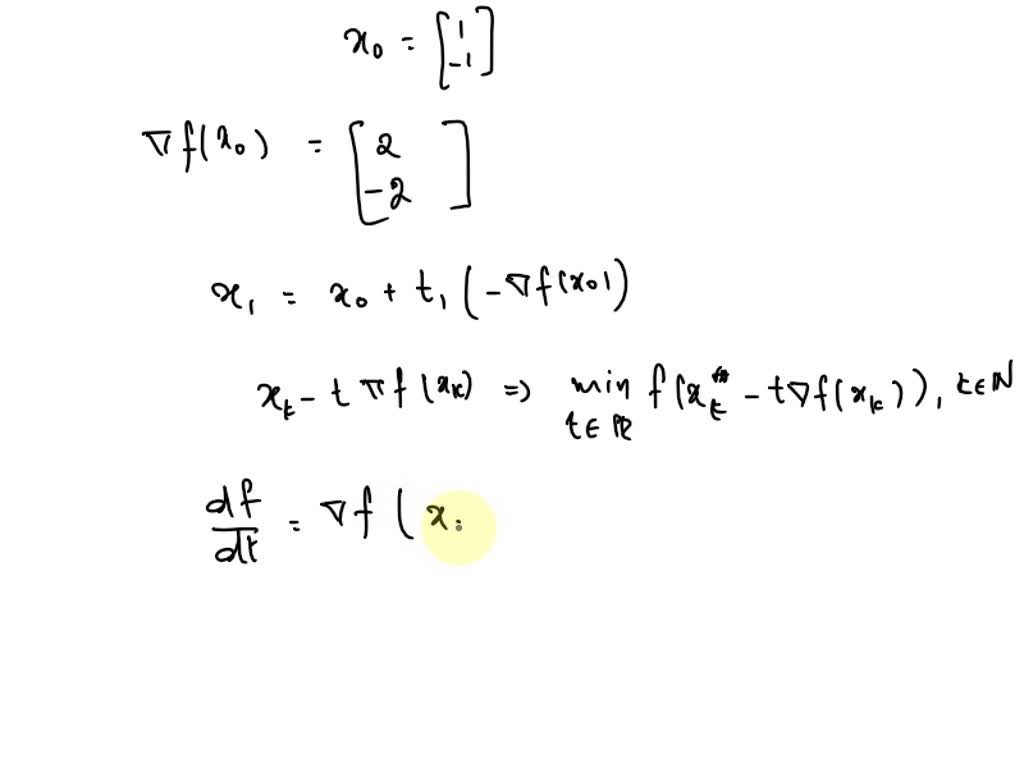 x₀ = [1 -1]
∇f(x₀) = [2 -2]
x₁ = x₀ + t₁ (-∇f(x₀))
x_t - t ∇f(x_k) ⇒ min f(x_t - t∇f(x_k)), t∈N
t∈ℝ
df/dt = ∇f ( x